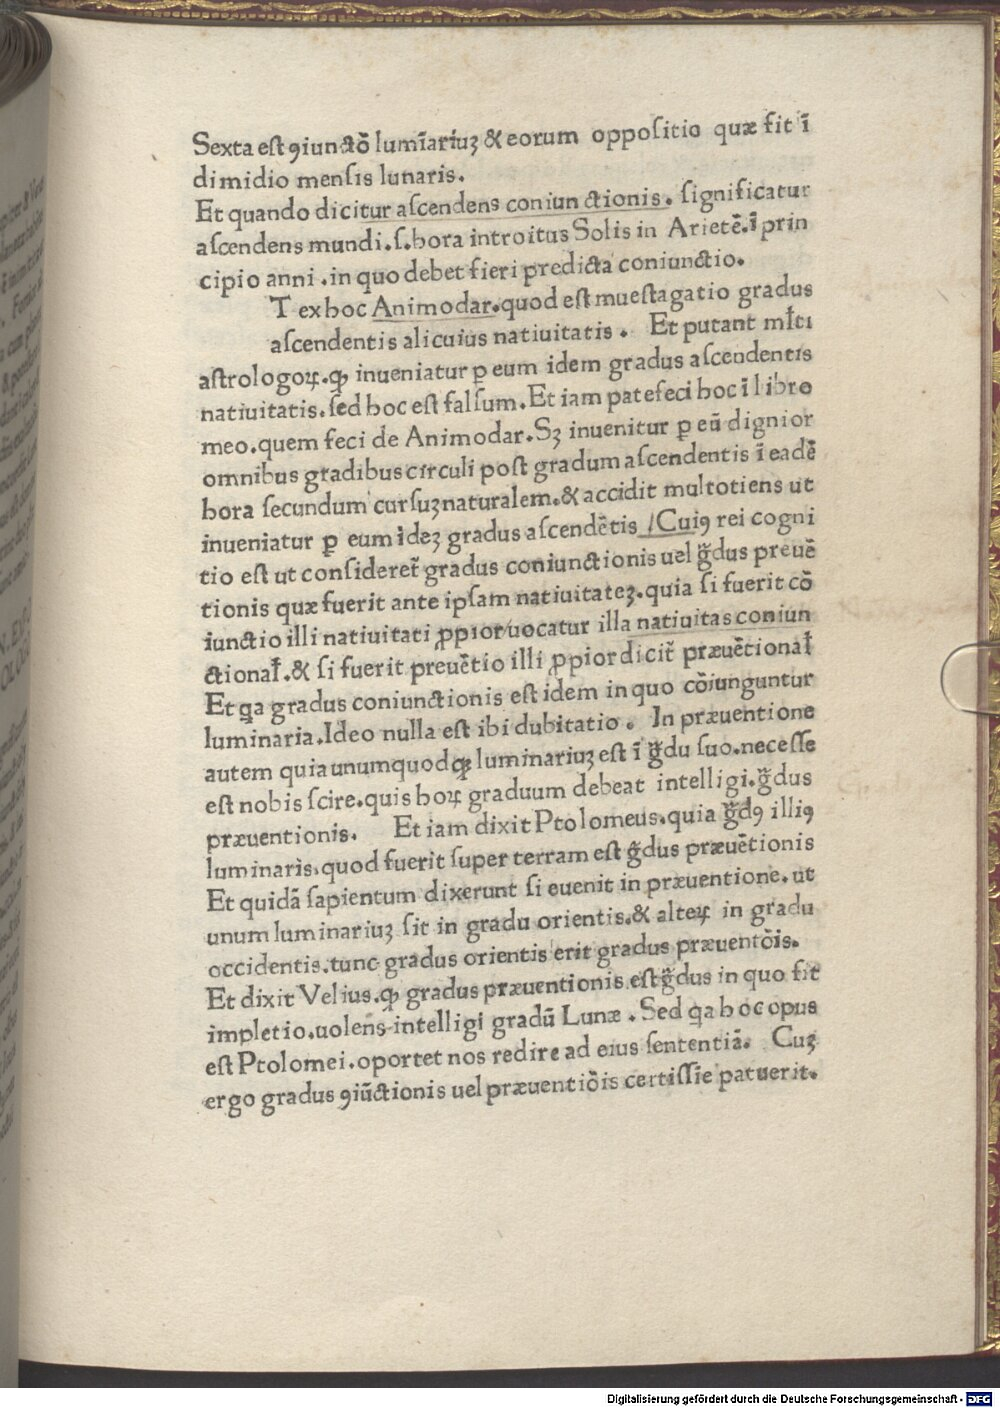 Sexta eſt ꝯiunctõ lumĩariuꝫ & eorum oppoſitio quæ fit ĩ
dimidio menſis lunaris.
Et quando dicitur aſcendens coniunctionis. ſignificatur
aſcendens mundi.ſ.hora introitus Solis in Arietẽ.ĩ prin
cipio anni .in quo debet fieri predicta coniunctio.
T ex hoc Animodar.quod eſt mueſtagatio gradus
aſcendentis alicuius natiuitatis . Et putant mł̃ti
aſtrologoꝝ.ꝙ inueniatur ꝑ eum idem gradus aſcendentis
natiuitatis.ſed hoc eſt falſum.Et iam patefeci hoc ĩ libro
meo.quem feci de Animodar.Sꝫ inuenitur ꝑ eũ dignior
omnibus gradibus circuli poſt gradum aſcendentis ĩ eadẽ
hora ſecundum curſuꝫ naturalem.& accidit multotiens ut
inueniatur ꝑ eum ideꝫ gradus aſcendẽtis /Cuiꝯ rei cogni
tio eſt ut conſideret̃ gradus coniunctionis uel g̃dus preuẽ
tionis quæ fuerit ante ipſam natiuitateꝫ.quia ſi fuerit cõ
iunctio illi natiuitati ꝓpior uocatur illa natiuitas coniun
ctionał.& ſi fuerit preuẽtio illi ꝓpior dicit̃ præuẽtionał
Et qa gradus coniunctionis eſt idem in quo cõiunguntur
luminaria.Ideo nulla eſt ibi dubitatio . In præuentione
autem quia unumquodqꝫ luminariuꝫ eſt ĩ g̃du ſuo.neceſſe
eſt nobis ſcire.quis hoꝝ graduum debeat intelligi.g̃dus
præuentionis. Et iam dixit Ptolomeus.quia g̃dꝯ illiꝯ
luminaris.quod fuerit ſuper terram eſt g̃dus præuẽtionis
Et quidã ſapientum dixerunt ſi euenit in præuentione.ut
unum luminariuꝫ ſit in gradu orientis.& alteꝝ in gradu
occidentis.tunc gradus orientis erit gradus præuentõis.
Et dixit Velius.ꝙ gradus præuentionis.eſt g̃dus in quo fit
impletio.uolens intelligi gradũ Lunæ . Sed qa hoc opus
eſt Ptolomei.oportet nos redire ad eius ſententiã. Cuꝫ
ergo gradus ꝯiũctionis uel præuentiõis certiſſie patuerit.
Digitalisierung gefördert durch die Deutsche Forschungsgemeinschaft - DFG